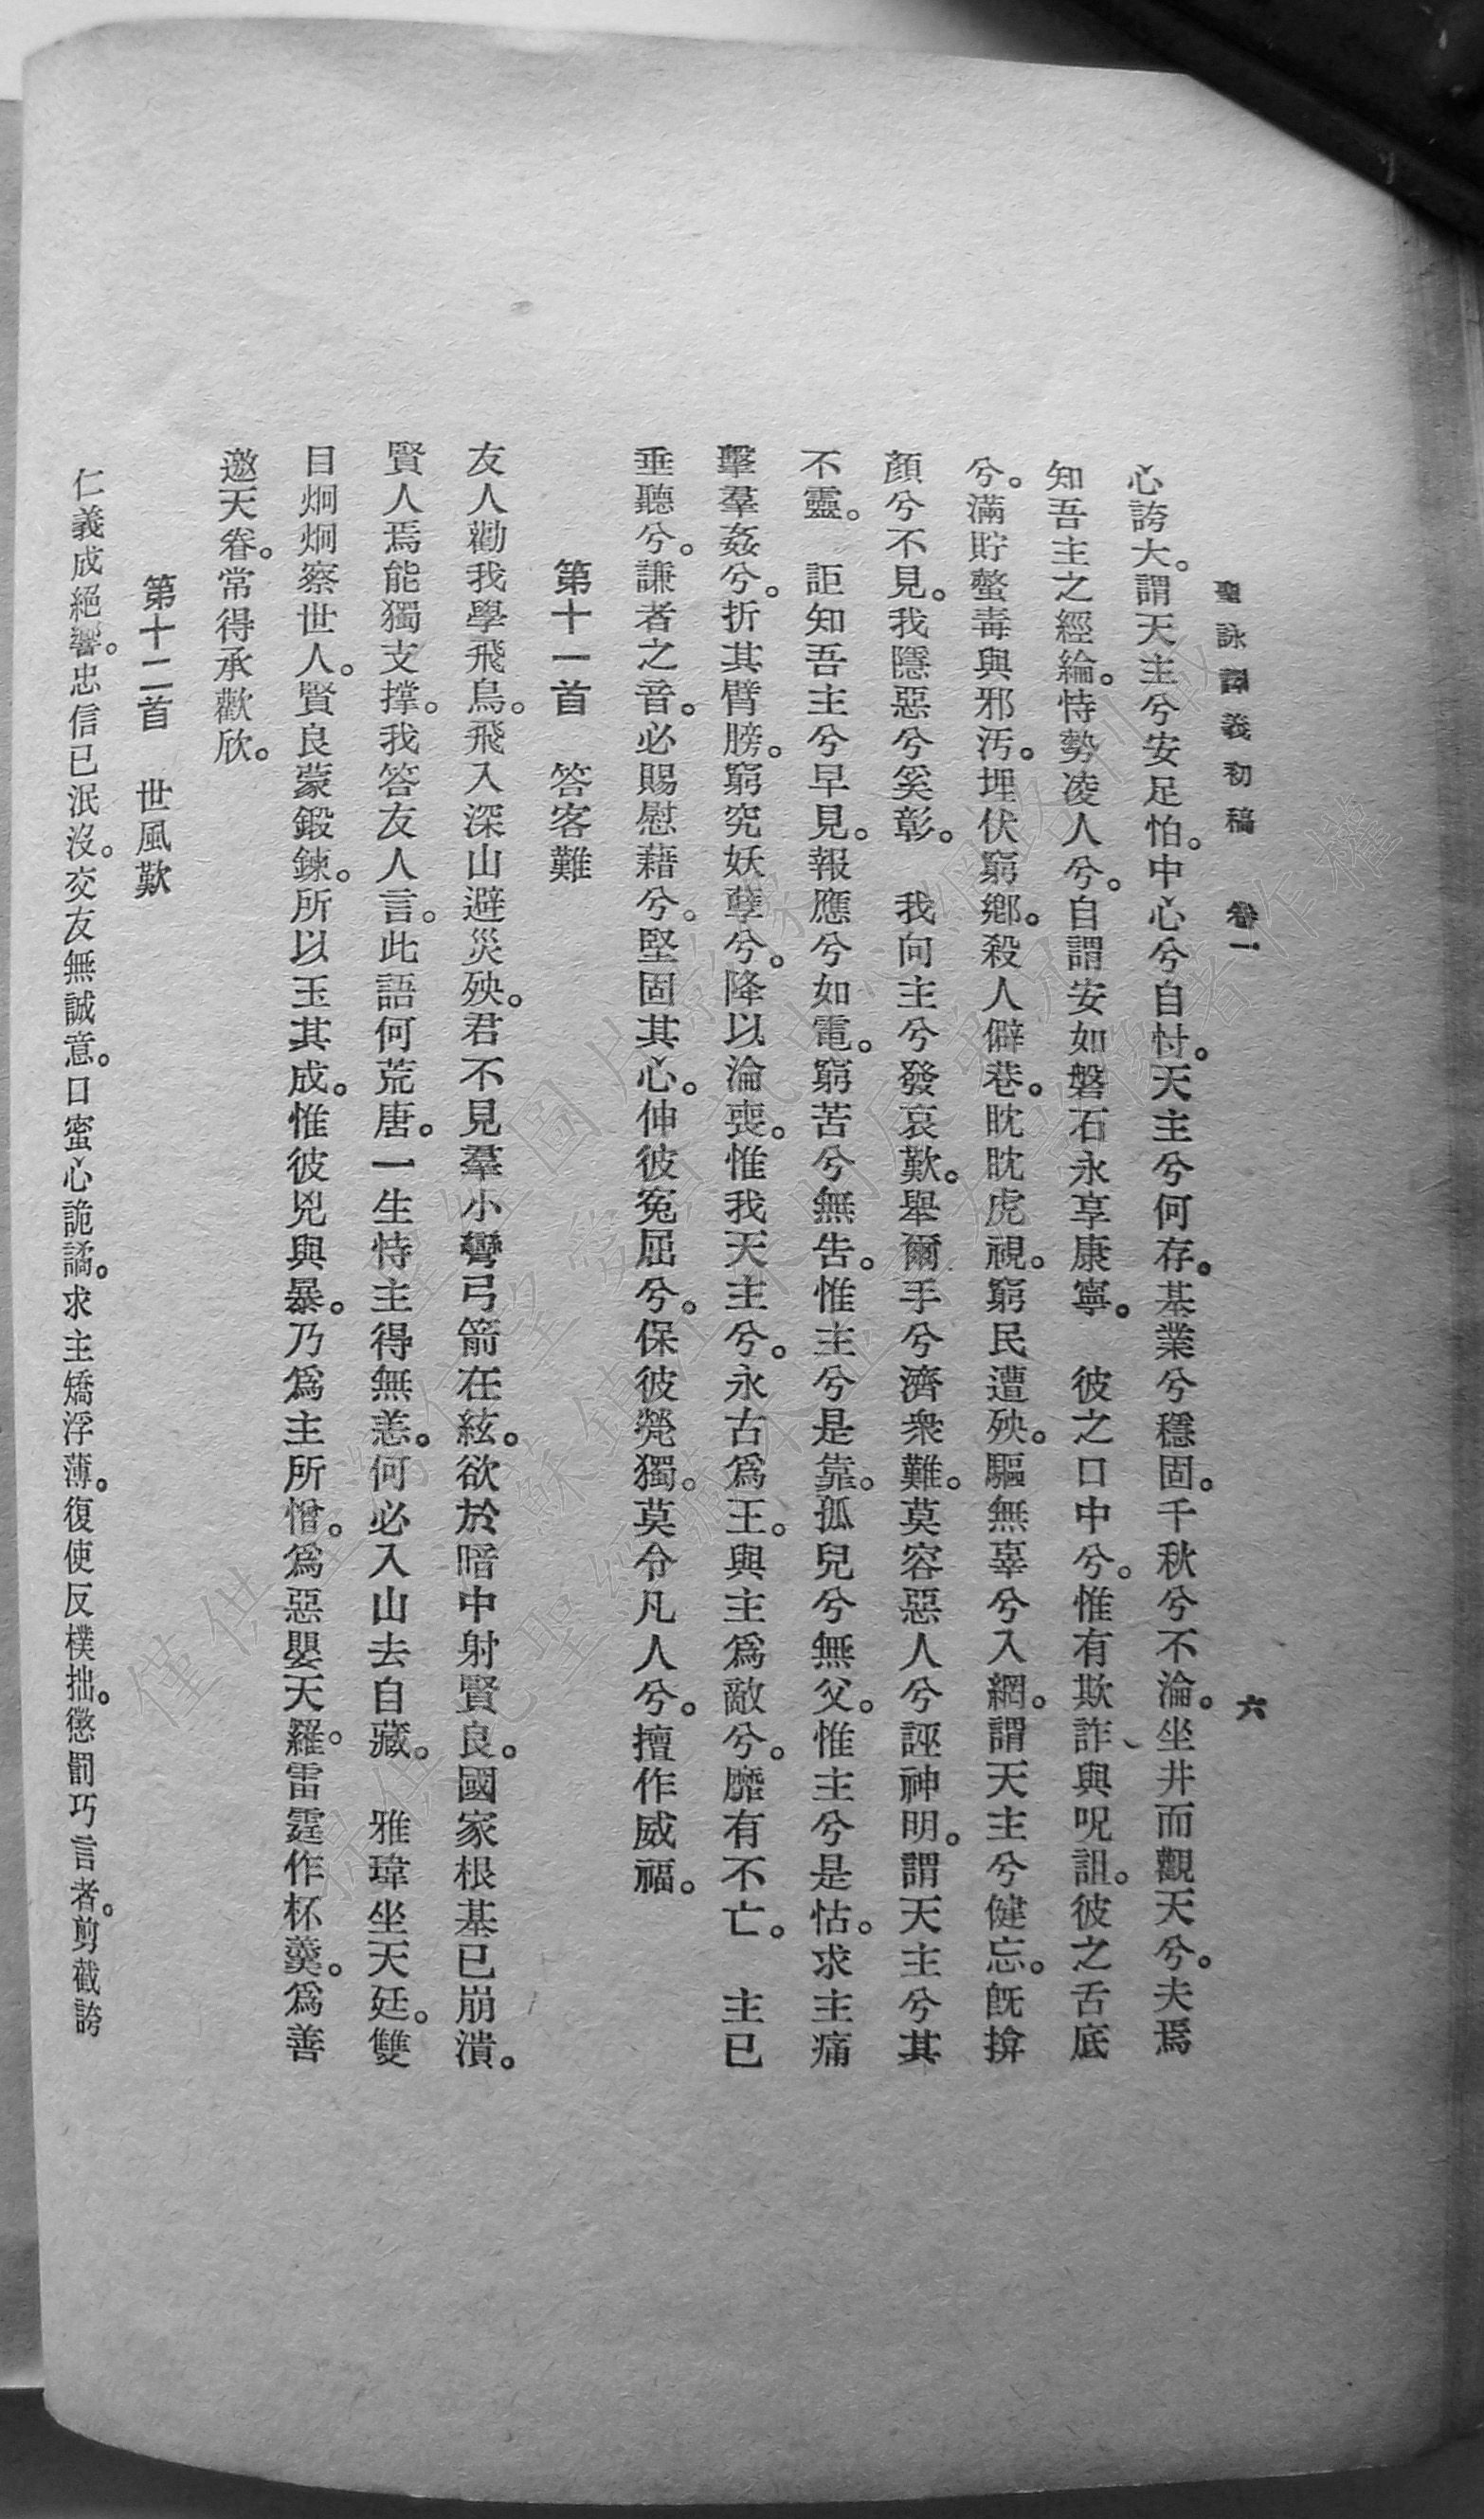 聖詠譯義初稿　卷一　六
心誇大。謂天主兮安足怕。中心兮自忖。天主兮何存。基業兮穩固。千秋兮不淪。坐井而觀天兮。夫焉
知吾主之經綸。恃勢凌人兮。自謂安如磐石永享康寧。　彼之口中兮。惟有欺詐與呪詛。彼之舌底
兮。滿貯螫毒與邪汚。埋伏窮鄕。殺人僻巷。眈眈虎視。窮民遭殃。驅無辜兮入網。謂天主兮健忘。旣揜
顏兮不見。我隱惡兮奚彰。　我向主兮發哀歎。舉爾手兮濟衆難。莫容惡人兮誣神明。謂天主兮其
不靈。　詎知吾主兮早見。報應兮如電。窮苦兮無告。惟主兮是靠。孤兒兮無父。惟主兮是怙。求主痛
擊羣姦兮。折其臂膀。窮究妖孽兮。降以淪喪。惟我天主兮。永古爲王。與主爲敵兮。靡有不亡。　主已
垂聽兮。謙者之音。必賜慰藉兮。堅固其心。伸彼冤屈兮。保彼煢獨。莫令凡人兮。擅作威福。
第十一首　答客難
友人勸我學飛鳥。飛入深山避災殃。君不見羣小彎弓箭在絃。欲於暗中射賢良。國家根基已崩潰。
賢人焉能獨支撐。我答友人言。此語何荒唐。一生恃主得無恙。何必入山去自藏。　雅瑋坐天廷。雙
目炯炯察世人。賢良蒙鍛鍊。所以玉其成。惟彼兇與暴。乃爲主所憎。爲惡嬰天羅。雷霆作杯羹。爲善
邀天眷。常得承歡欣。
第十二首　世風歎
仁義成絕響。忠信已泯沒。交友無誠意。口蜜心詭譎。求主矯浮薄。復使反樸拙。懲罰巧言者。剪截誇